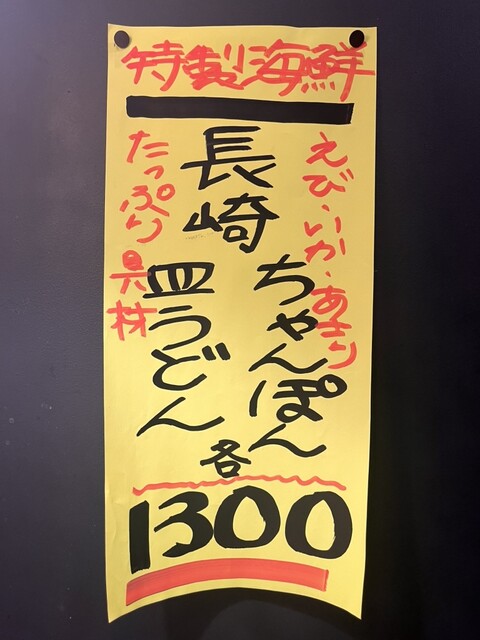 特製海鮮
えび・いか・あさり
長崎
ちゃんぽん
皿うどん
たっぷり具材
各
1300